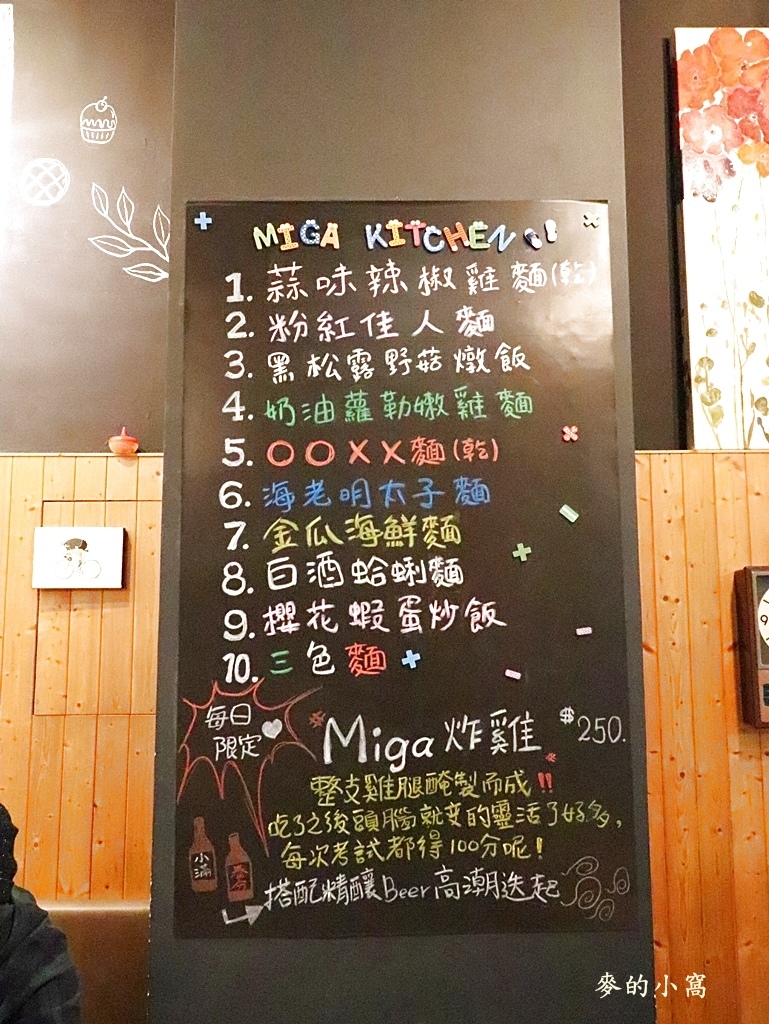 MIGA KITCHEN
1. 蒜味辣椒雞麵(乾)
2. 粉紅佳人麵
3. 黑松露野菇燉飯
4. 奶油蘿勒嫩雞麵
5. ○○XX麵(乾)
6. 海老明太子麵
7. 金瓜海鮮麵
8. 白酒蛤蜊麵
9. 櫻花蝦蛋炒飯
10. 三色麵
每日
限定
Miga 炸雞 $250.
整支雞腿醃製而成!!
吃了之後頭腦就变的靈活了好多,
每次考試都得100分呢!
小滿
搭配精釀Beer高潮迭起
麥的小窩